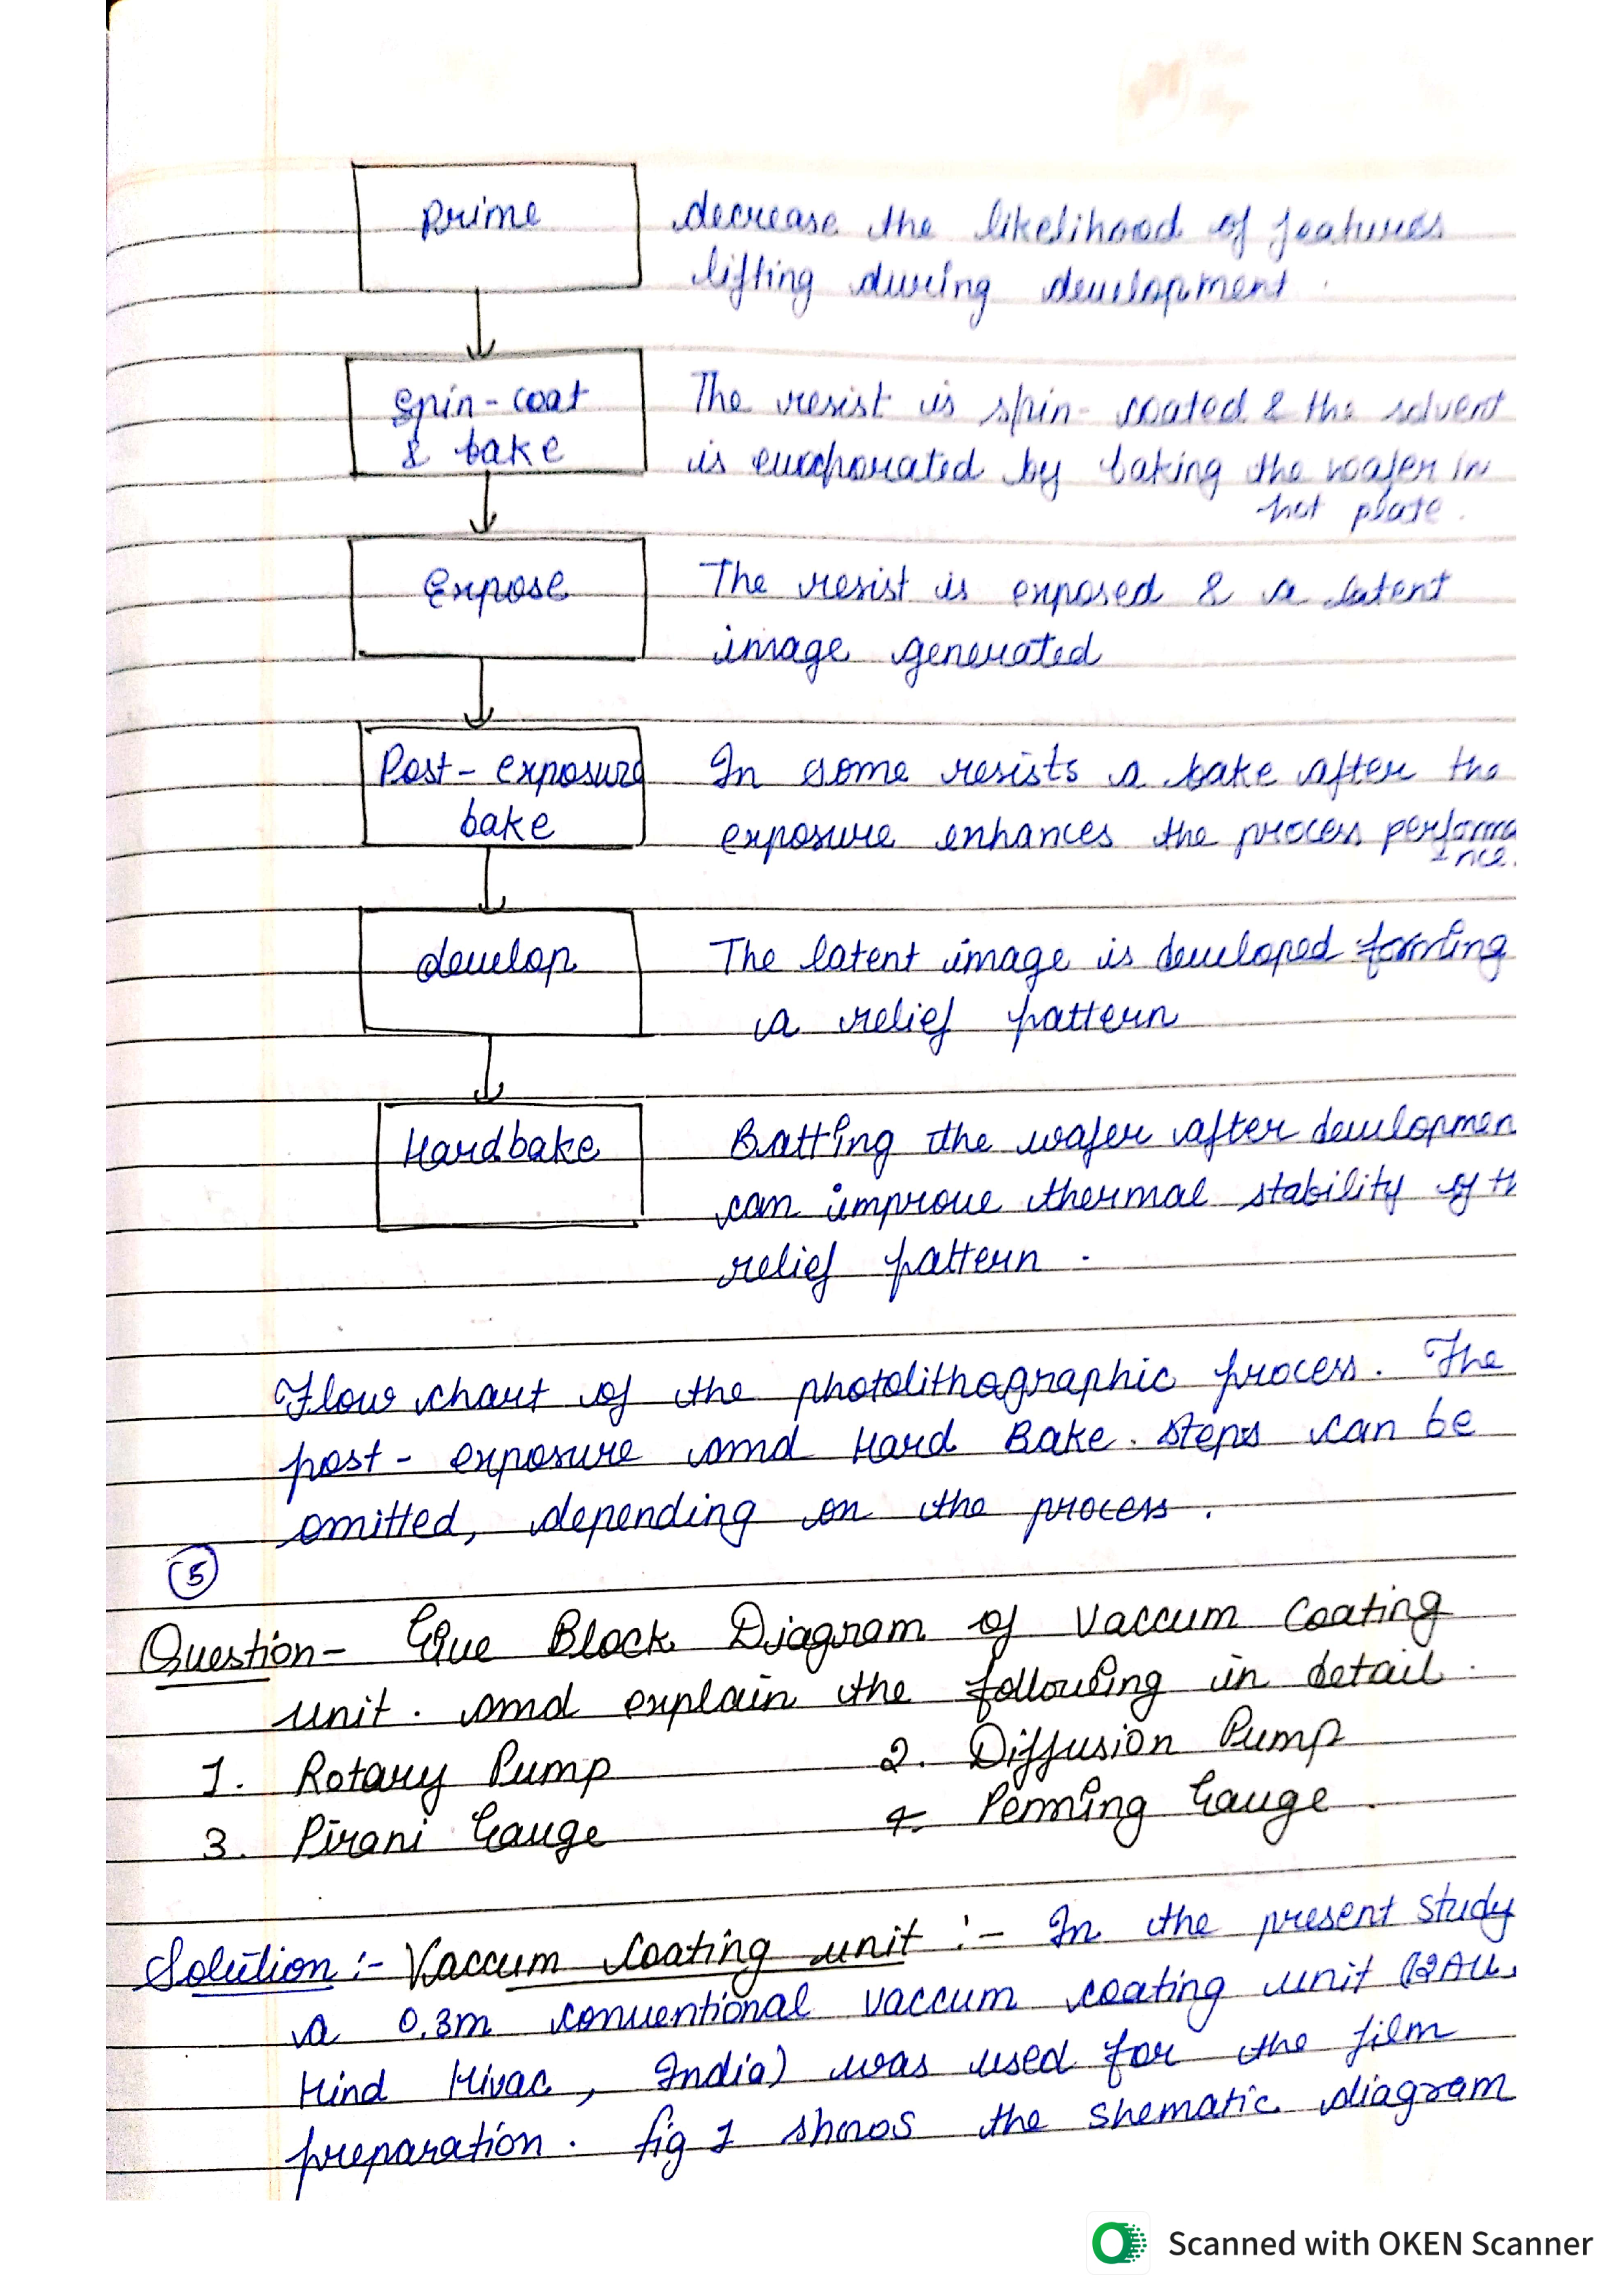 Prime
decrease the likelihood of features
lifting during development.
Spin-coat
& bake
The resist is spin-coated & the solvent
is evaporated by baking the wafer in
hot plate.
Expose
The resist is exposed & a latent
image generated
Post-exposure
bake
In some resists a bake after the
exposure enhances the process performa
nce.
develop
The latent image is developed forming
a relief pattern
Hardbake
Batting the wafer after developmen
can improve thermal stability of th
relief pattern.
Flow chart of the photolithographic process. The
post-exposure and Hard Bake. Steps can be
omitted, depending on the process.
5
Question- Give Block Diagram of Vaccum Coating
unit. and explain the following in detail.
1. Rotary Pump
2. Diffusion Pump
3. Pirani Gauge
4. Penning Gauge.
Solution:- Vaccum coating unit :- In the present study
a 0.3m conventional vaccum coating unit (12AU,
Hind Hivac, India) was used for the film
preparation. fig 1 shows the shematic diagram
Scanned with OKEN Scanner